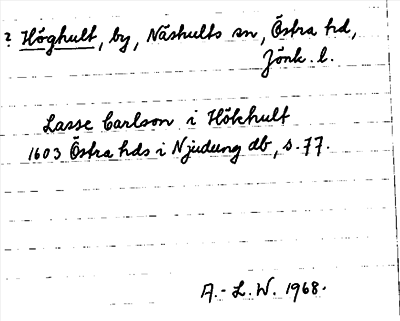 ? Höghult, by, Näshults sn, Östra hd,
Jönk. l.
Lasse Carlson i Hökhult
1603 Östra hds i Njudung db, s. 77.
A.-L.W. 1968.